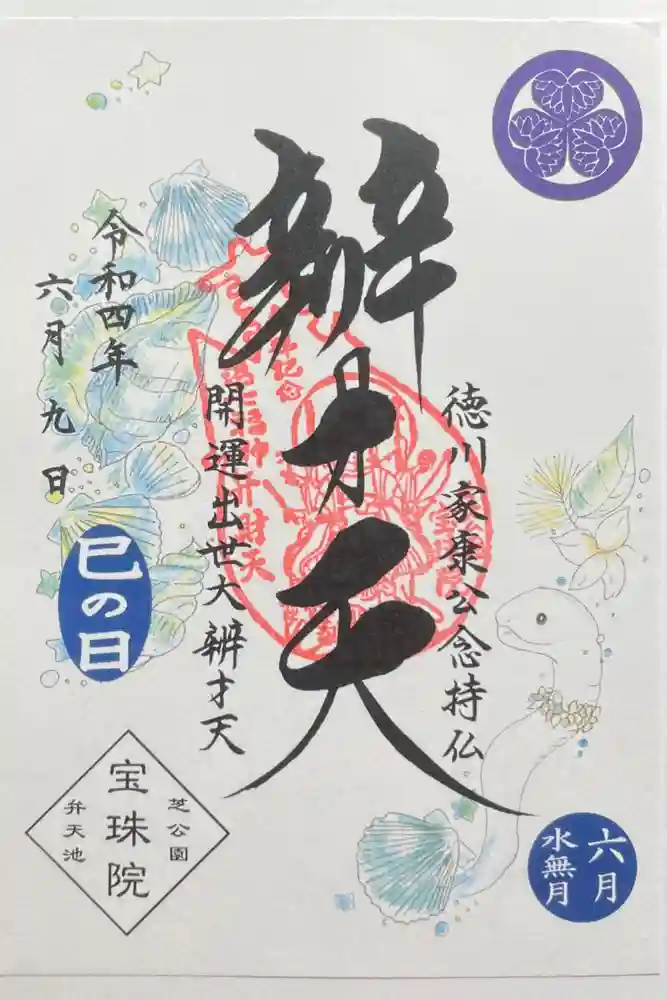 徳川家康公念持仏
辨才天
開運出世大辨才天
令和四年
六月九日
巳の日
六月
水無月
芝公園
宝珠院
弁天池